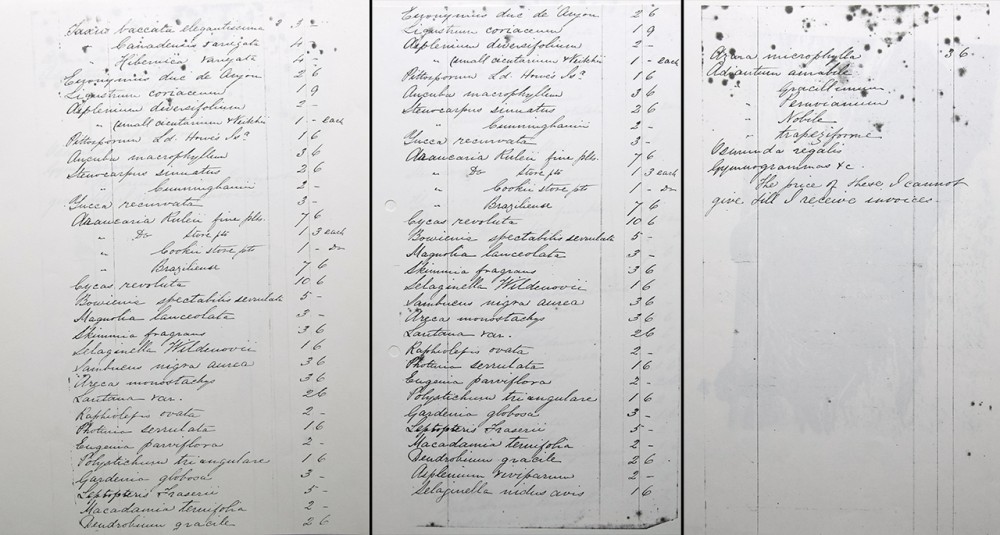 Taxus baccata elegantissima 2 3 -
" Canadensis variegata 4 -
" Hibernica variegata 4 -
Euonymus duc de Anjou 2 6
Ligustrum coriaceum 1 9
Asplenium diversifolium 2 -
" (small cicutarium & Veitchii 1 - each
Pittosporum Ld. Howes Isd 1 6
Aucuba macrophyllum 3 6
Stenocarpus sinuatus 2 6
" Cunninghamii 2 -
Yucca recurvata 3 -
Araucaria Rulei fine plts. 7 6
" Do store pts 1 3 each
" Cookii store pts 1 - do
" Braziliense 7 6
Cycas revoluta 10 6
Bowienia spectabilis serrulata 5 -
Magnolia lanceolata 3 -
Skimmia fragrans 3 6
Selaginella Wildenovii 1 6
Sambucus nigra aurea 3 6
Areca monostachys 3 6
Lantana var. 2 6
Raphiolepis ovata 2 -
Photinia serrulata 1 6
Eugenia parviflora 2 -
Polystichum triangulare 1 6
Gardenia globosa 3 -
Leptopteris Fraserii 5 -
Macadamia ternifolia 2 -
Dendrobium gracile 2 6
Euonymus duc de Anjou 2 6
Ligustrum coriaceum 1 9
Asplenium diversifolium 2 -
" (small cicutarium & Veitchii 1 - each
Pittosporum Ld. Howes Isd 1 6
Aucuba macrophyllum 3 6
Stenocarpus sinuatus 2 6
" Cunninghamii 2 -
Yucca recurvata 3 -
Araucaria Rulei fine plts. 7 6
" Do store pts 1 3 each
" Cookii store pts 1 - do
" Braziliense 7 6
Cycas revoluta 10 6
Bowienia spectabilis serrulata 5 -
Magnolia lanceolata 3 -
Skimmia fragrans 3 6
Selaginella Wildenovii 1 6
Sambucus nigra aurea 3 6
Areca monostachys 3 6
Lantana var. 2 6
Raphiolepis ovata 2 -
Photinia serrulata 1 6
Eugenia parviflora 2 -
Polystichum triangulare 1 6
Gardenia globosa 3 -
Leptopteris Fraserii 5 -
Macadamia ternifolia 2 -
Dendrobium gracile 2 6
Asplenium viviparum 2 -
Selaginella nidus avis 1 6
Azara microphylla 3 6
Adiantum amabile
" Gracillimum
" Peruvianum
" Nobile
" trapeziforme
Osmunda regalis
Gymnogrammas &c.
The price of these I cannot
give till I receive invoices.